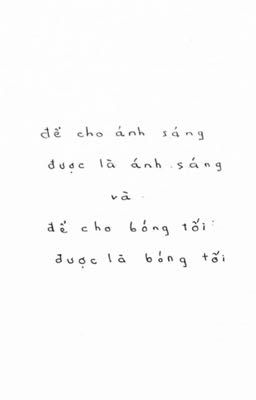 để cho ánh sáng
được là ánh sáng
và
để cho bóng tối
được là bóng tối